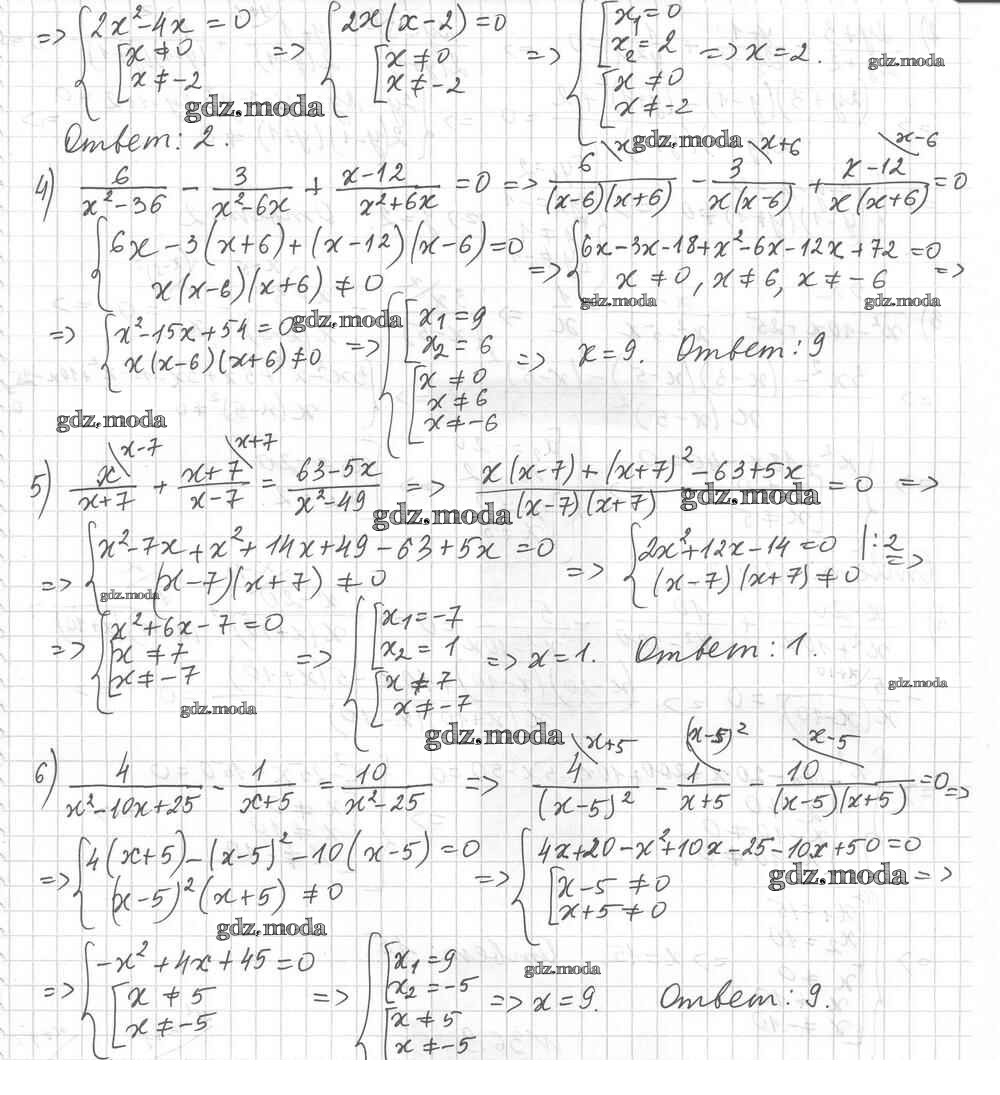 => { 2x² - 4x = 0 [ x ≠ 0 x ≠ -2 => { 2x(x - 2) = 0 [ x ≠ 0 x ≠ -2 => { [ x₁ = 0 x₂ = 2 [ x ≠ 0 x ≠ -2 => x = 2.
gdz.moda
gdz.moda
Ответ: 2.
gdz.moda
4) 6/(x² - 36) - 3/(x² - 6x) + (x - 12)/(x² + 6x) = 0 => 6\x/((x-6)(x+6)) - 3\x+6/(x(x-6)) + (x-12)\x-6/(x(x+6)) = 0
{ 6x - 3(x+6) + (x-12)(x-6) = 0 x(x-6)(x+6) ≠ 0 => { 6x - 3x - 18 + x² - 6x - 12x + 72 = 0 x ≠ 0, x ≠ 6, x ≠ -6 =>
gdz.moda
gdz.moda
=> { x² - 15x + 54 = 0 x(x-6)(x+6) ≠ 0 => { [ x₁ = 9 x₂ = 6 [ x ≠ 0 x ≠ 6 x ≠ -6 => x = 9. Ответ: 9
gdz.moda
gdz.moda
5) x\x-7/(x+7) + (x+7)\x+7/(x-7) = (63-5x)/(x²-49) => (x(x-7) + (x+7)² - 63 + 5x)/((x-7)(x+7)) = 0 =>
gdz.moda
gdz.moda
=> { x² - 7x + x² + 14x + 49 - 63 + 5x = 0 (x-7)(x+7) ≠ 0 => { 2x² + 12x - 14 = 0 |:2 (x-7)(x+7) ≠ 0 =>
gdz.moda
=> { x² + 6x - 7 = 0 [ x ≠ 7 x ≠ -7 => { [ x₁ = -7 x₂ = 1 [ x ≠ 7 x ≠ -7 => x = 1. Ответ: 1.
gdz.moda
gdz.moda
gdz.moda
6) 4/(x² - 10x + 25) - 1/(x+5) = 10/(x² - 25) => 4\x+5/(x-5)² - 1\(x-5)²/(x+5) - 10\x-5/((x-5)(x+5)) = 0 =>
=> { 4(x+5) - (x-5)² - 10(x-5) = 0 (x-5)²(x+5) ≠ 0 => { 4x + 20 - x² + 10x - 25 - 10x + 50 = 0 [ x-5 ≠ 0 x+5 ≠ 0 =>
gdz.moda
gdz.moda
=> { -x² + 4x + 45 = 0 [ x ≠ 5 x ≠ -5 => { [ x₁ = 9 x₂ = -5 [ x ≠ 5 x ≠ -5 => x = 9. Ответ: 9.
gdz.moda